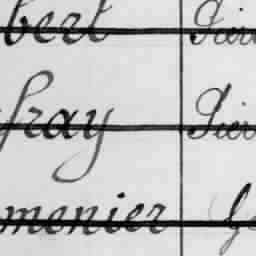 bert Pier
fray Pier
monier